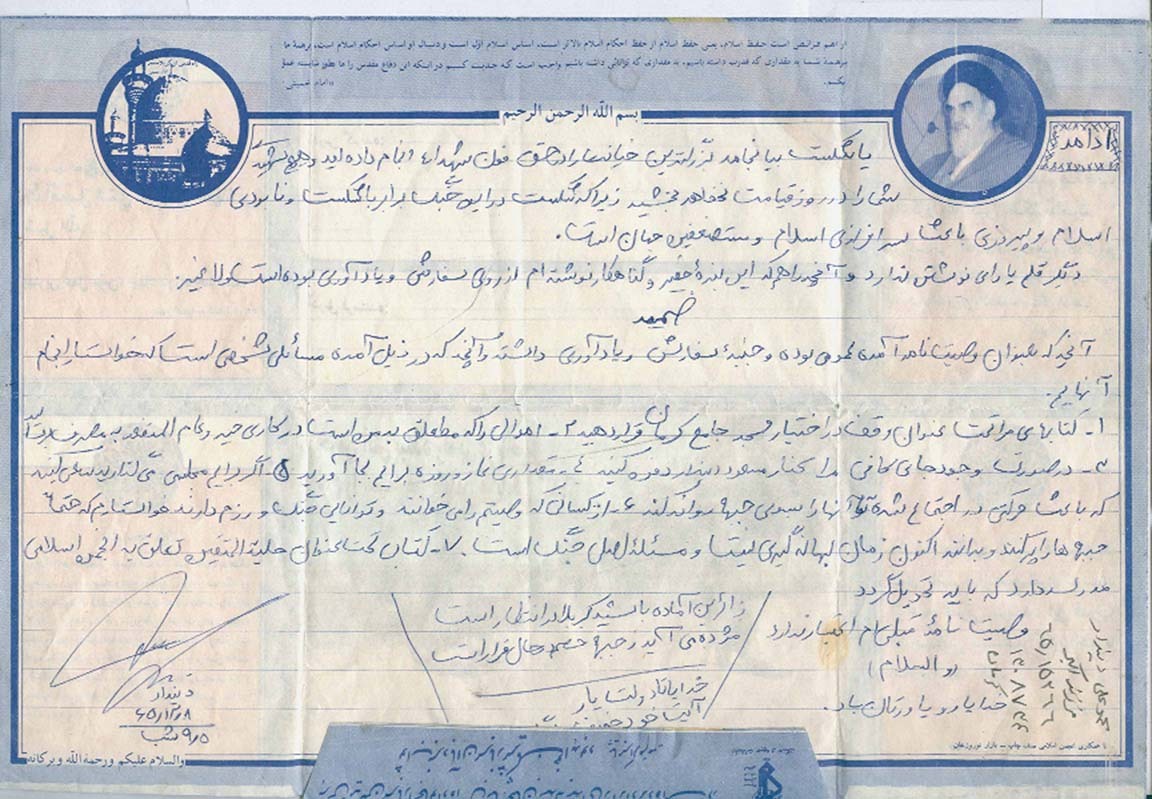 از اهم فرائض است حفظ اسلام، یعنی حفظ اسلام از حفظ احکام اسلام بالاتر است، اساس اسلام اول است و دنبال او اساس احکام اسلام است، برهمهٔ ما
برهمهٔ شما به مقداری که قدرت داشته باشیم، به مقداری که توانائی داشته باشیم واجب است که جدیت کنیم در اینکه این دفاع مقدس را ما بطور شایسته عمل
بکنیم. «امام خمینی»
بسم الله الرحمن الرحیم
ادامه
یا شکست بیانجامد بزرگترین خیانت را در حق خون شهداء انجام داده اید و هیچ شهیدی
شما را در روز قیامت نخواهد بخشید زیرا که شکست در این جنگ برابر با شکست و نابودی
اسلام و پیروزی باعث سرافرازی اسلام و مستضعفین جهان است.
دیگر قلم یارای نوشتن ندارد و آنچه را هم که این بندهٔ حقیر و گناهکار نوشته ام از روی سفارش و یادآوری بوده است ولاغیر.
ضمیمه
آنچه که بعنوان وصیت نامه آمده عمومی بوده و جنبهٔ سفارش و یادآوری داشته و آنچه که در ذیل آمده مسائلی شخصی است که خواستار انجام
آنهایم.
۱- کتابهای مرا تحت عنوان وقف در اختیار مسجد جامع کرمان قرار دهید ۲- اموالی را که متعلق بمن است در کاری خیر و عام المنفعه به مصرف رسانید
۳- در صورت وجود جای کافی مرا کنار مسعود دفن کنید ۴- مقداری نماز و روزه برایم بجا آورید ۵- اگر برایم مجلسی می گذارید سعی کنید
که باعث حرکتی در اجتماع شده تا آنها را بسوی جبهه روانه کند ۶- از کسانی که وصیتم را می خوانند و توانایی جنگ و رزم دارند خواستارم که حتماً
جبهه ها را پر کنند و بدانند اکنون زمان بهانه گیری نیست و مسئلهٔ اصلی جنگ است. ۷- کتاب تحت عنوان حلیة المتقین تعلق به انجمن اسلامی
مدرسه دارد که باید تحویل گردد
وصیت نامهٔ قبلی ام اعتبار ندارد
(والسلام)
خدا یار و یاورتان باد.
زائرین آماده باشید کربلا در انتظار است
مژده می آید ز جبهه خصم در حال فرار است
دیندار
۶۵/۱۰/۸
۹/۵ شب
محمد علی دیندار
فرزند اکبر
والسلام علیکم ورحمة الله وبرکاته